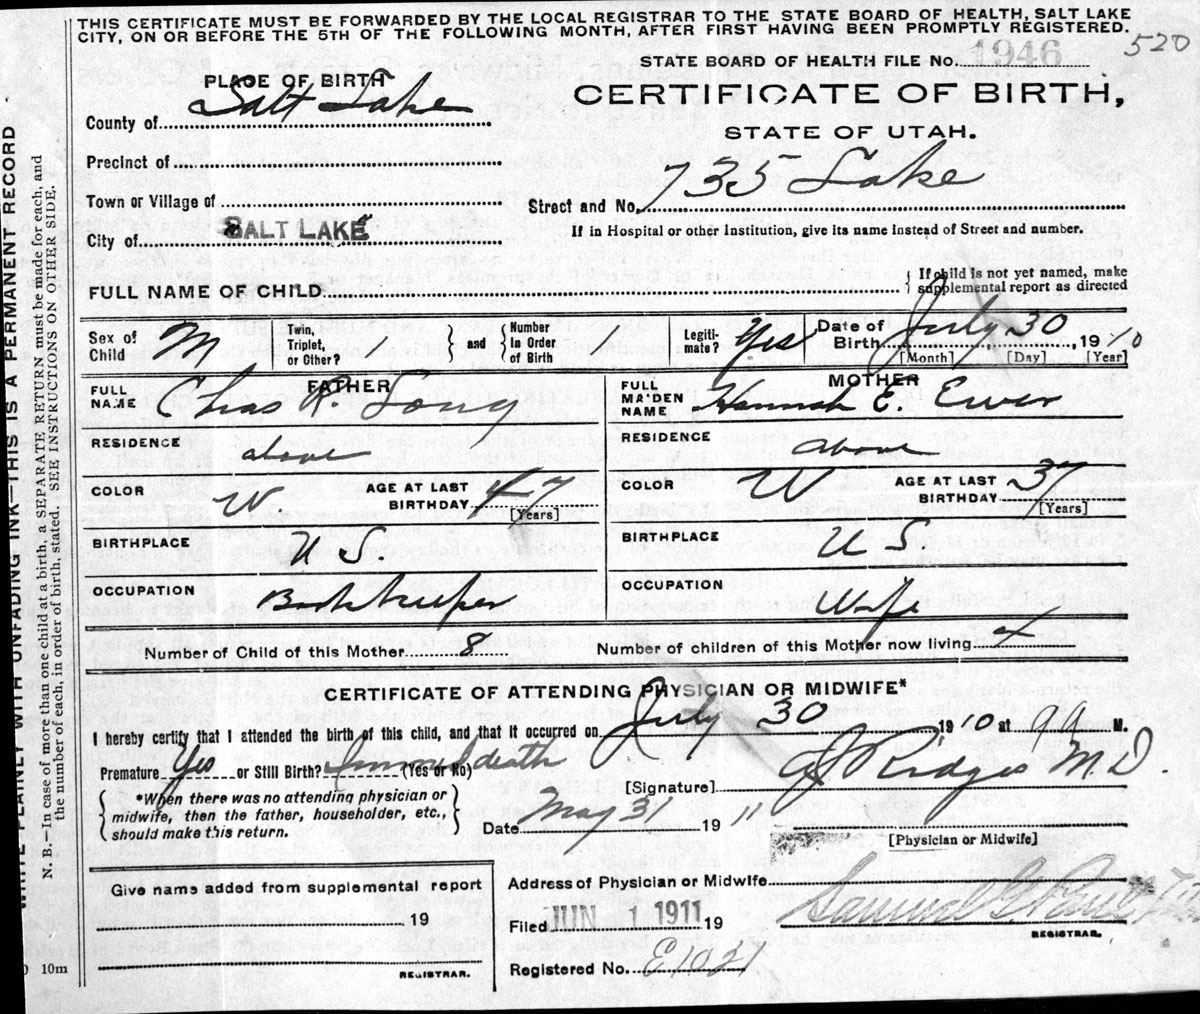 THIS CERTIFICATE MUST BE FORWARDED BY THE LOCAL REGISTRAR TO THE STATE BOARD OF HEALTH, SALT LAKE
CITY, ON OR BEFORE THE 5TH OF THE FOLLOWING MONTH, AFTER FIRST HAVING BEEN PROMPTLY REGISTERED.
520
STATE BOARD OF HEALTH FILE No. 1946
PLACE OF BIRTH
CERTIFICATE OF BIRTH,
STATE OF UTAH.
County of Salt Lake
Precinct of
Town or Village of
Street and No. 735 Lake
City of SALT LAKE
If in Hospital or other Institution, give its name instead of Street and number.
FULL NAME OF CHILD
{ If child is not yet named, make
supplemental report as directed
Sex of Child M
Twin, Triplet, or Other? 1
and
Number In Order of Birth
Legitimate? Yes
Date of Birth July 30, 1910
[Month] [Day] [Year]
FATHER
FULL NAME Chas R. Long
MOTHER
FULL MAIDEN NAME Hannah E.
RESIDENCE above
RESIDENCE above
COLOR W
AGE AT LAST BIRTHDAY 47 [Years]
COLOR W
AGE AT LAST BIRTHDAY 37 [Years]
BIRTHPLACE U S.
BIRTHPLACE U S.
OCCUPATION Bookkeeper
OCCUPATION Wife
Number of Child of this Mother 8
Number of children of this Mother now living
CERTIFICATE OF ATTENDING PHYSICIAN OR MIDWIFE*
I hereby certify that I attended the birth of this child, and that it occurred on July 30, 1910 at 9 a M.
Premature Yes or Still Birth? death (Yes or No)
{ *When there was no attending physician or
midwife, then the father, householder, etc.,
should make this return. }
[Signature] Ridges M.D.
Date May 31 1911
[Physician or Midwife]
Give name added from supplemental report
19
REGISTRAR.
Address of Physician or Midwife
Filed JUN 1 1911 19
Samuel G. Paul
REGISTRAR.
Registered No. E1021
10m
WRITE PLAINLY WITH UNFADING INK—THIS IS A PERMANENT RECORD
N. B.—In case of more than one child at a birth, a SEPARATE RETURN must be made for each, and
the number of each, in order of birth, stated. SEE INSTRUCTIONS ON OTHER SIDE.